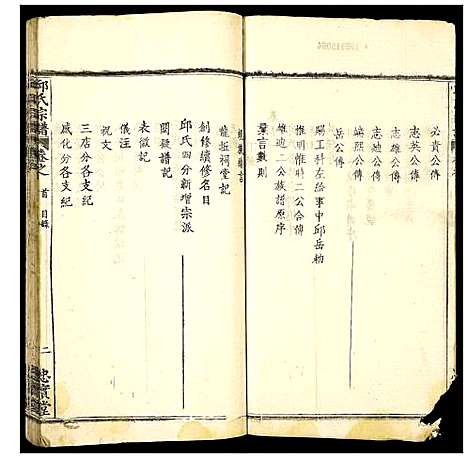 必貴公傳
志英公傳
志雄公傳
志廸公傳
編熙公傳
岳公傳
賜工科左給事中邱岳勑
惟明惟時二公合傳
雄廸二公族譜原序
羣言數則
龍扯祠堂記
創修續修名目
邱氏四分新增宗派
闕疑譜記
表徵記
儀注
祝文
三店分各支紀
咸化分各支紀
邱氏宗譜
卷之首 目錄
二
忠實堂